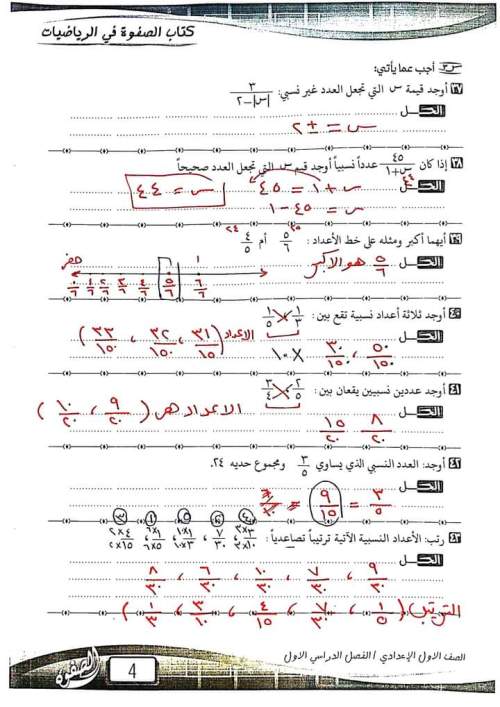 كتاب الصفوة في الرياضيات
س٣ أجب عما يأتي:
٣٧ أوجد قيمة س التي تجعل العدد غير نسبي: ٣/(|س|-٢)
الحـــل
س = ± ٢
٣٨ إذا كان ٤٥/(س+١) عدداً نسبياً أوجد قيم س التي تجعل العدد صحيحاً
٤٤
الحـــل س + ١ = ٤٥ س = ٤٤
س = ٤٥ - ١
٣٩ أيهما أكبر ومثله على خط الأعداد: ٥/٦ أم ٤/٥
٢٥ ٢٤
الحـــل ٥/٦ هو الاكبر
صفر ١
٠/٦ ١/٦ ٢/٦ ٣/٦ ٤/٦ ٥/٦ ٦/٦
٤٠ أوجد ثلاثة أعداد نسبية تقع بين: ١/٣ ، ١/٥
الحـــل
٥٠/١٥٠ ، ٣٠/١٥٠ × ١٠ الاعداد (٣١/١٥٠ ، ٣٢/١٥٠ ، ٣٣/١٥٠)
٤١ أوجد عددين نسبيين يقعان بين: ٢/٥ ، ٣/٤
الحـــل
٨/٢٠ ، ١٥/٢٠ الاعداد هى (٩/٢٠ ، ١٠/٢٠)
٤٢ أوجد: العدد النسبي الذي يساوي ٣/٥ ومجموع حديه ٢٤.
الحـــل
٣/٥ = ٩/١٥ =
٤٣ رتب: الأعداد النسبية الآتية ترتيباً تصاعدياً: ٣×٣/٣×١٠ ، ٧/٣٠ ، ١٠×١/١٠×٣ ، ٦×١/٦×٥ ، ٢×٤/٢×١٥
الحـــل
٩/٣٠ ، ٧/٣٠ ، ١٠/٣٠ ، ٦/٣٠ ، ٨/٣٠
الترتيب (١/٥ ، ٧/٣٠ ، ٤/١٥ ، ٣/١٠ ، ١/٣)
الصف الاول الإعدادي / الفصل الدراسي الاول
4
الصفوة